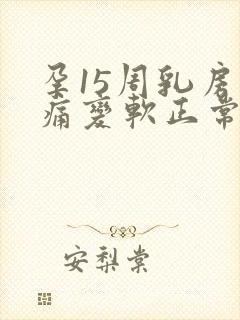 孕15周乳房
痛變軟正常
安梨棠